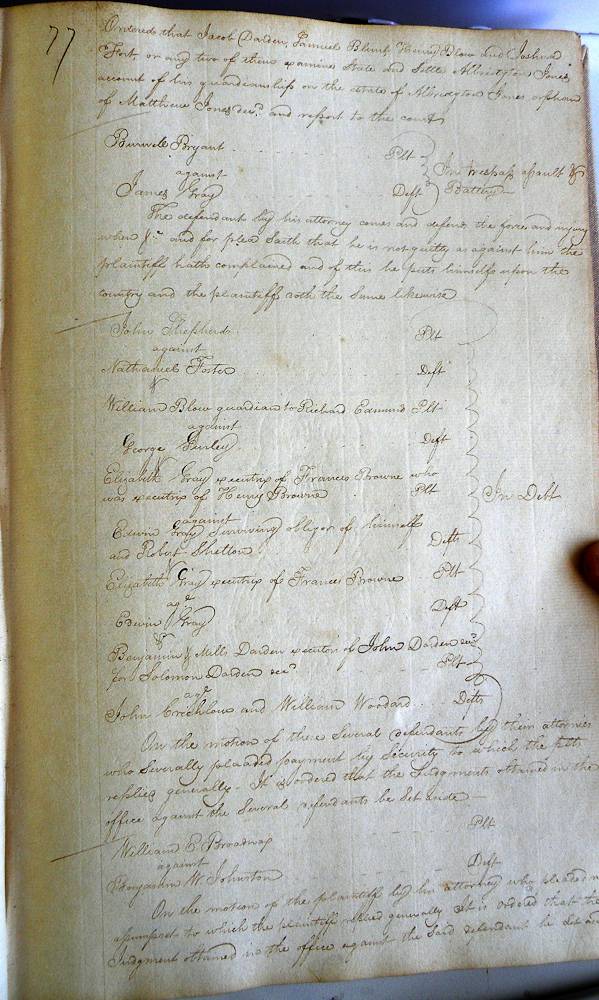 77
Ordered that Jacob Darden, Samuel Blunt Henry Blow and Joshua
Fort, or any two of them examine State and Settle Albridgton Jones
account of his guardianship on the estate of Albridgton Jones orphan
of Matthew Jones decd. and report to the court
Burwell Bryant Plt
against In trespass assault &
James Gray Deft Battery
The defendant by his attorney comes and defends the force and injury
when &c. and for plea Saith that he is not guilty as against him the
plaintiff hath complained and of this he puts himself upon the
country and the plaintiff doth the Same likewise
John Shepherd Plt
against
Nathaniel Foster Deft
&
William Blow guardian to Richard Edmund Plt
against
George Gurley Deft
&
Elizabeth Gray executrix of Frances Browne who
was executrix of Henry Browne Plt In Debt
against
Edwin Gray Surviving obligor of himself
and Robert Shelton Defts
&
Elizabeth Gray executrix of Frances Browne Plt
agt
Edwin Gray Deft
&
Benjamin & Mills Darden executors of John Darden decd
for Solomon Darden decd Plt
agt
John Crichlow and William Woodard Defts
On the motion of these Several defendants by their attornies
who Severally pleaded payment by Security to which the plts
replied generally. It is ordered that the Judgments obtained in the
office against the Several defendants be Set aside
William E. Broadnax Plt
against
Benjamin W Johnston Deft
On the motion of the plaintiff by his attorney who pleaded
assumpsit to which the plaintiff replied generally It is ordered that the
Judgment obtained in the office against the Said defendant be Set